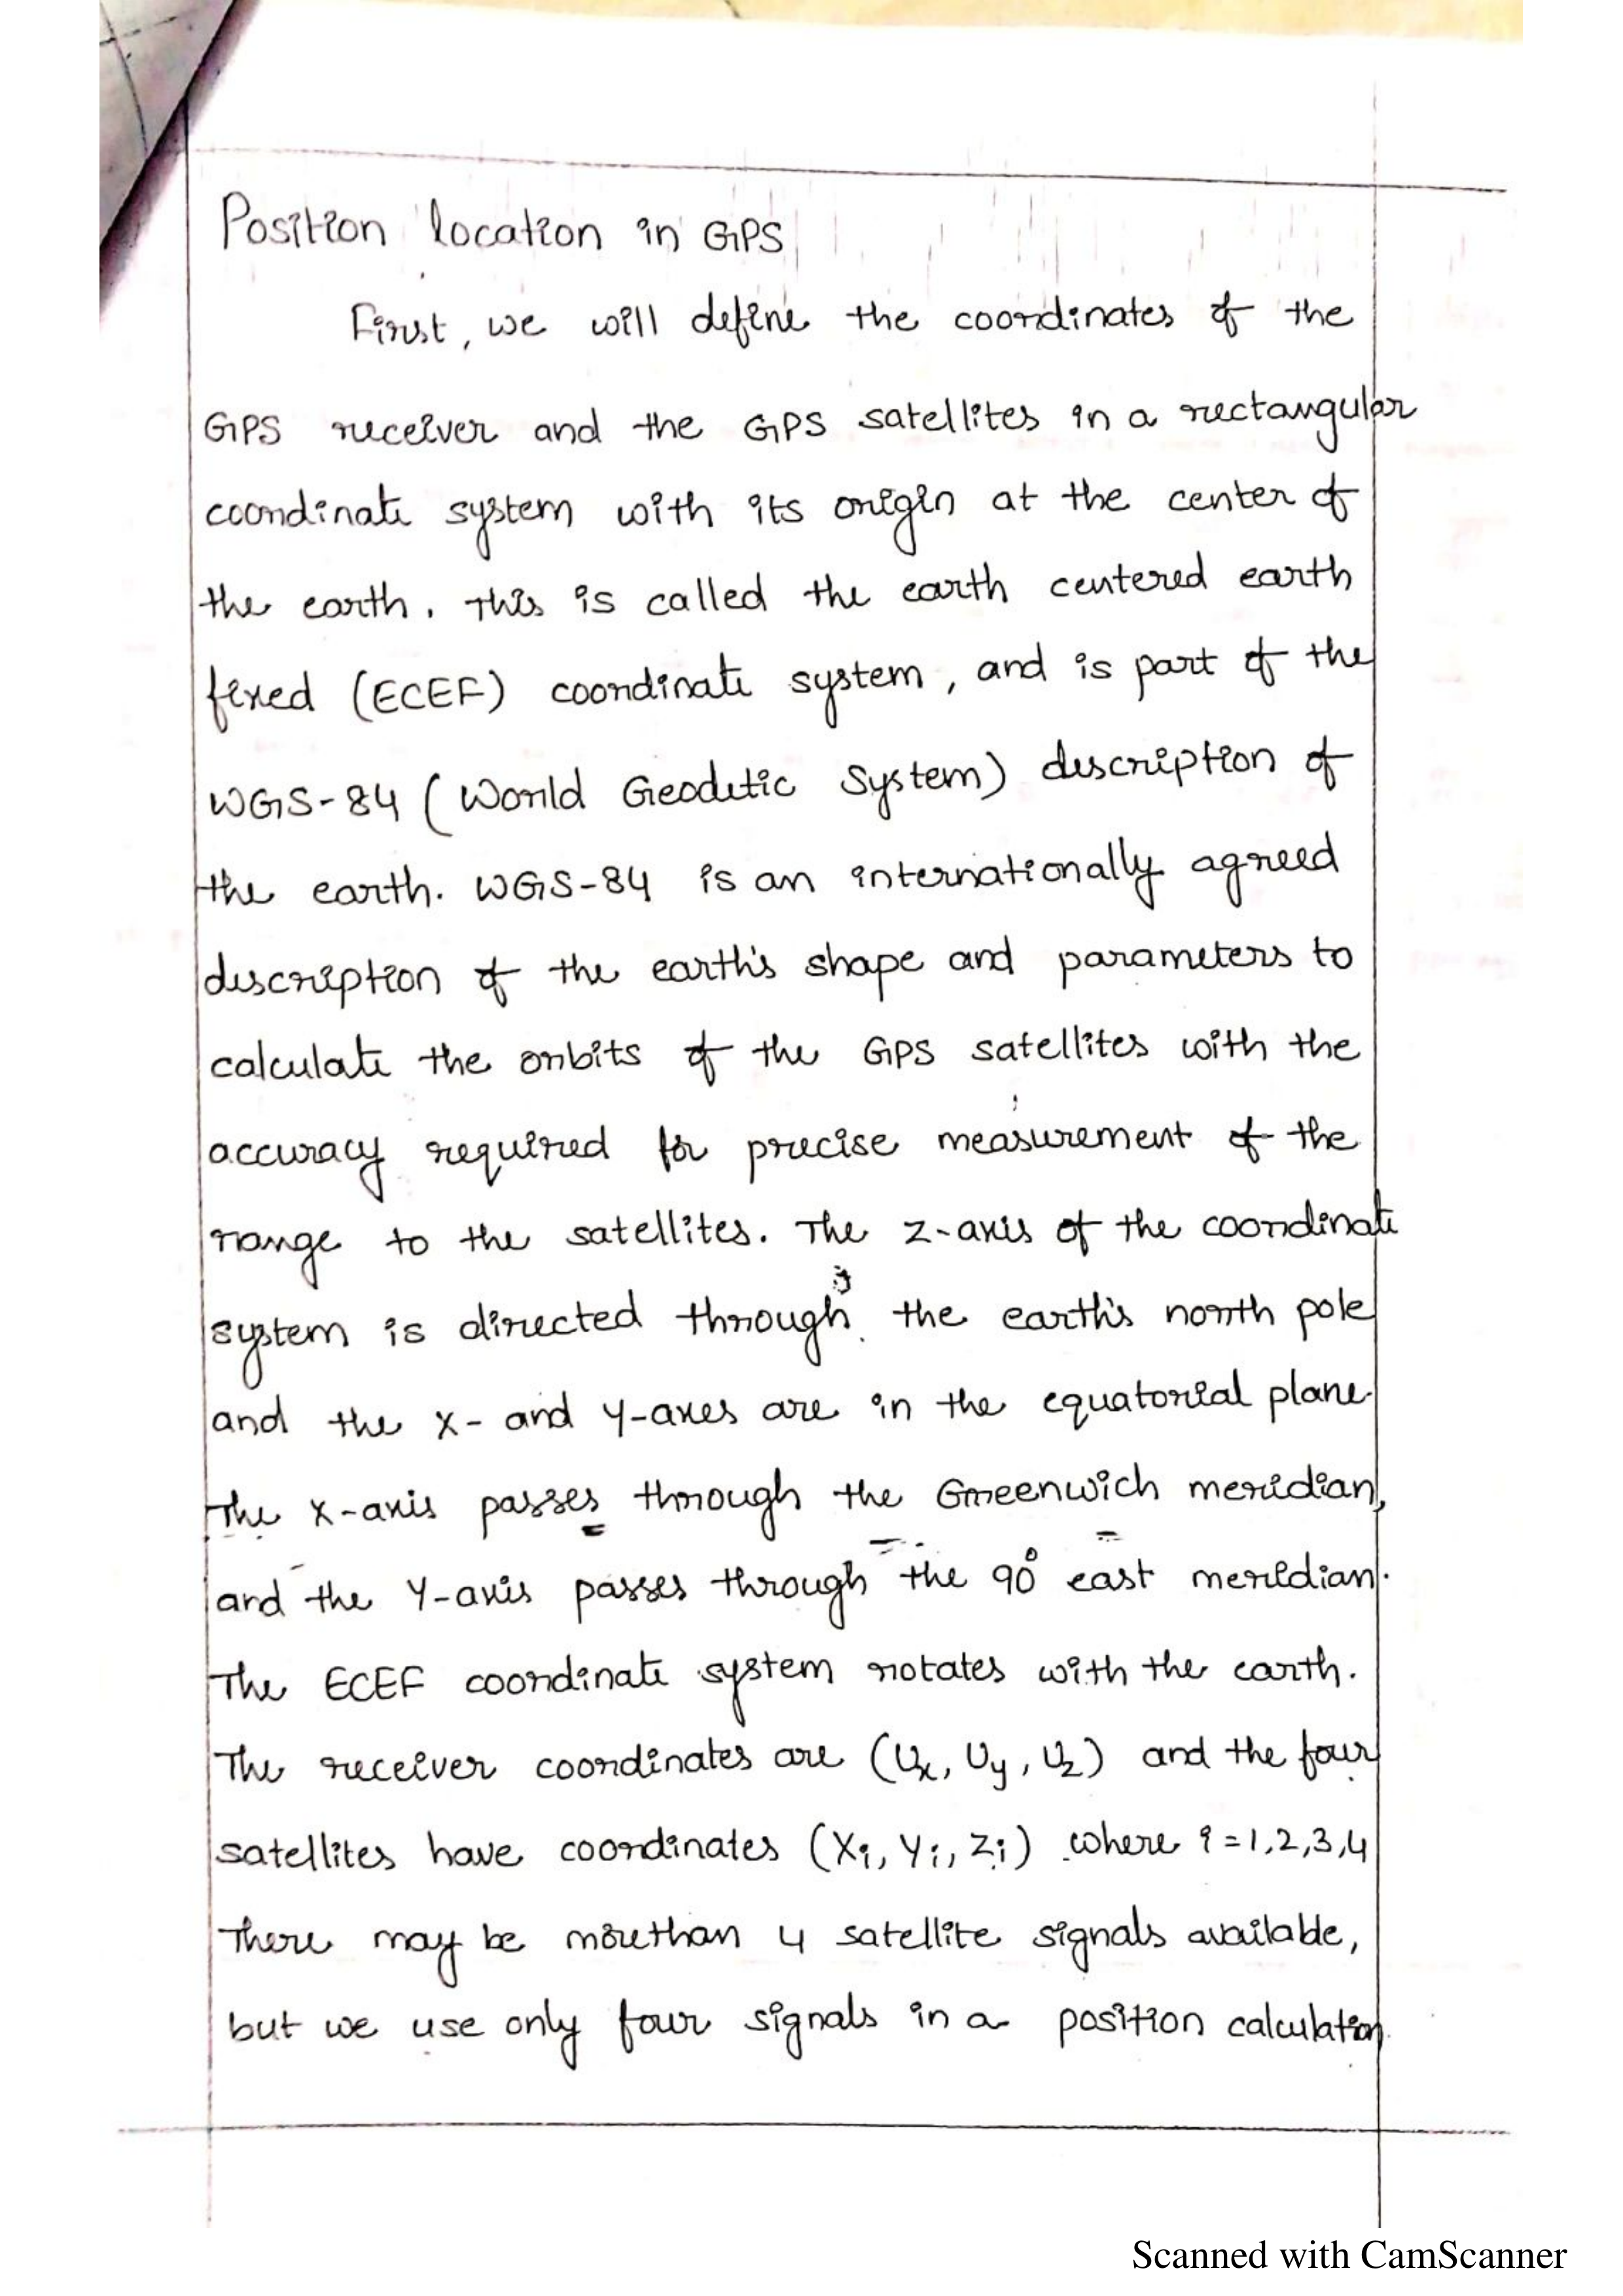 Position location in GPS
First, we will define the coordinates of the
GPS receiver and the GPS satellites in a rectangular
coordinate system with its origin at the center of
the earth. This is called the earth centered earth
fixed (ECEF) coordinate system, and is part of the
WGS-84 (World Geodetic System) description of
the earth. WGS-84 is an internationally agreed
description of the earth's shape and parameters to
calculate the orbits of the GPS satellites with the
accuracy required for precise measurement of the
range to the satellites. The z-axis of the coordinate
system is directed through the earth's north pole
and the x- and y-axes are in the equatorial plane.
The x-axis passes through the Greenwich meridian,
and the Y-axis passes through the 90° east meridian.
The ECEF coordinate system rotates with the earth.
The receiver coordinates are (Ux, Uy, Uz) and the four
satellites have coordinates (Xi, Yi, Zi) where i=1,2,3,4
There may be morethan 4 satellite signals available,
but we use only four signals in a position calculation.
Scanned with CamScanner